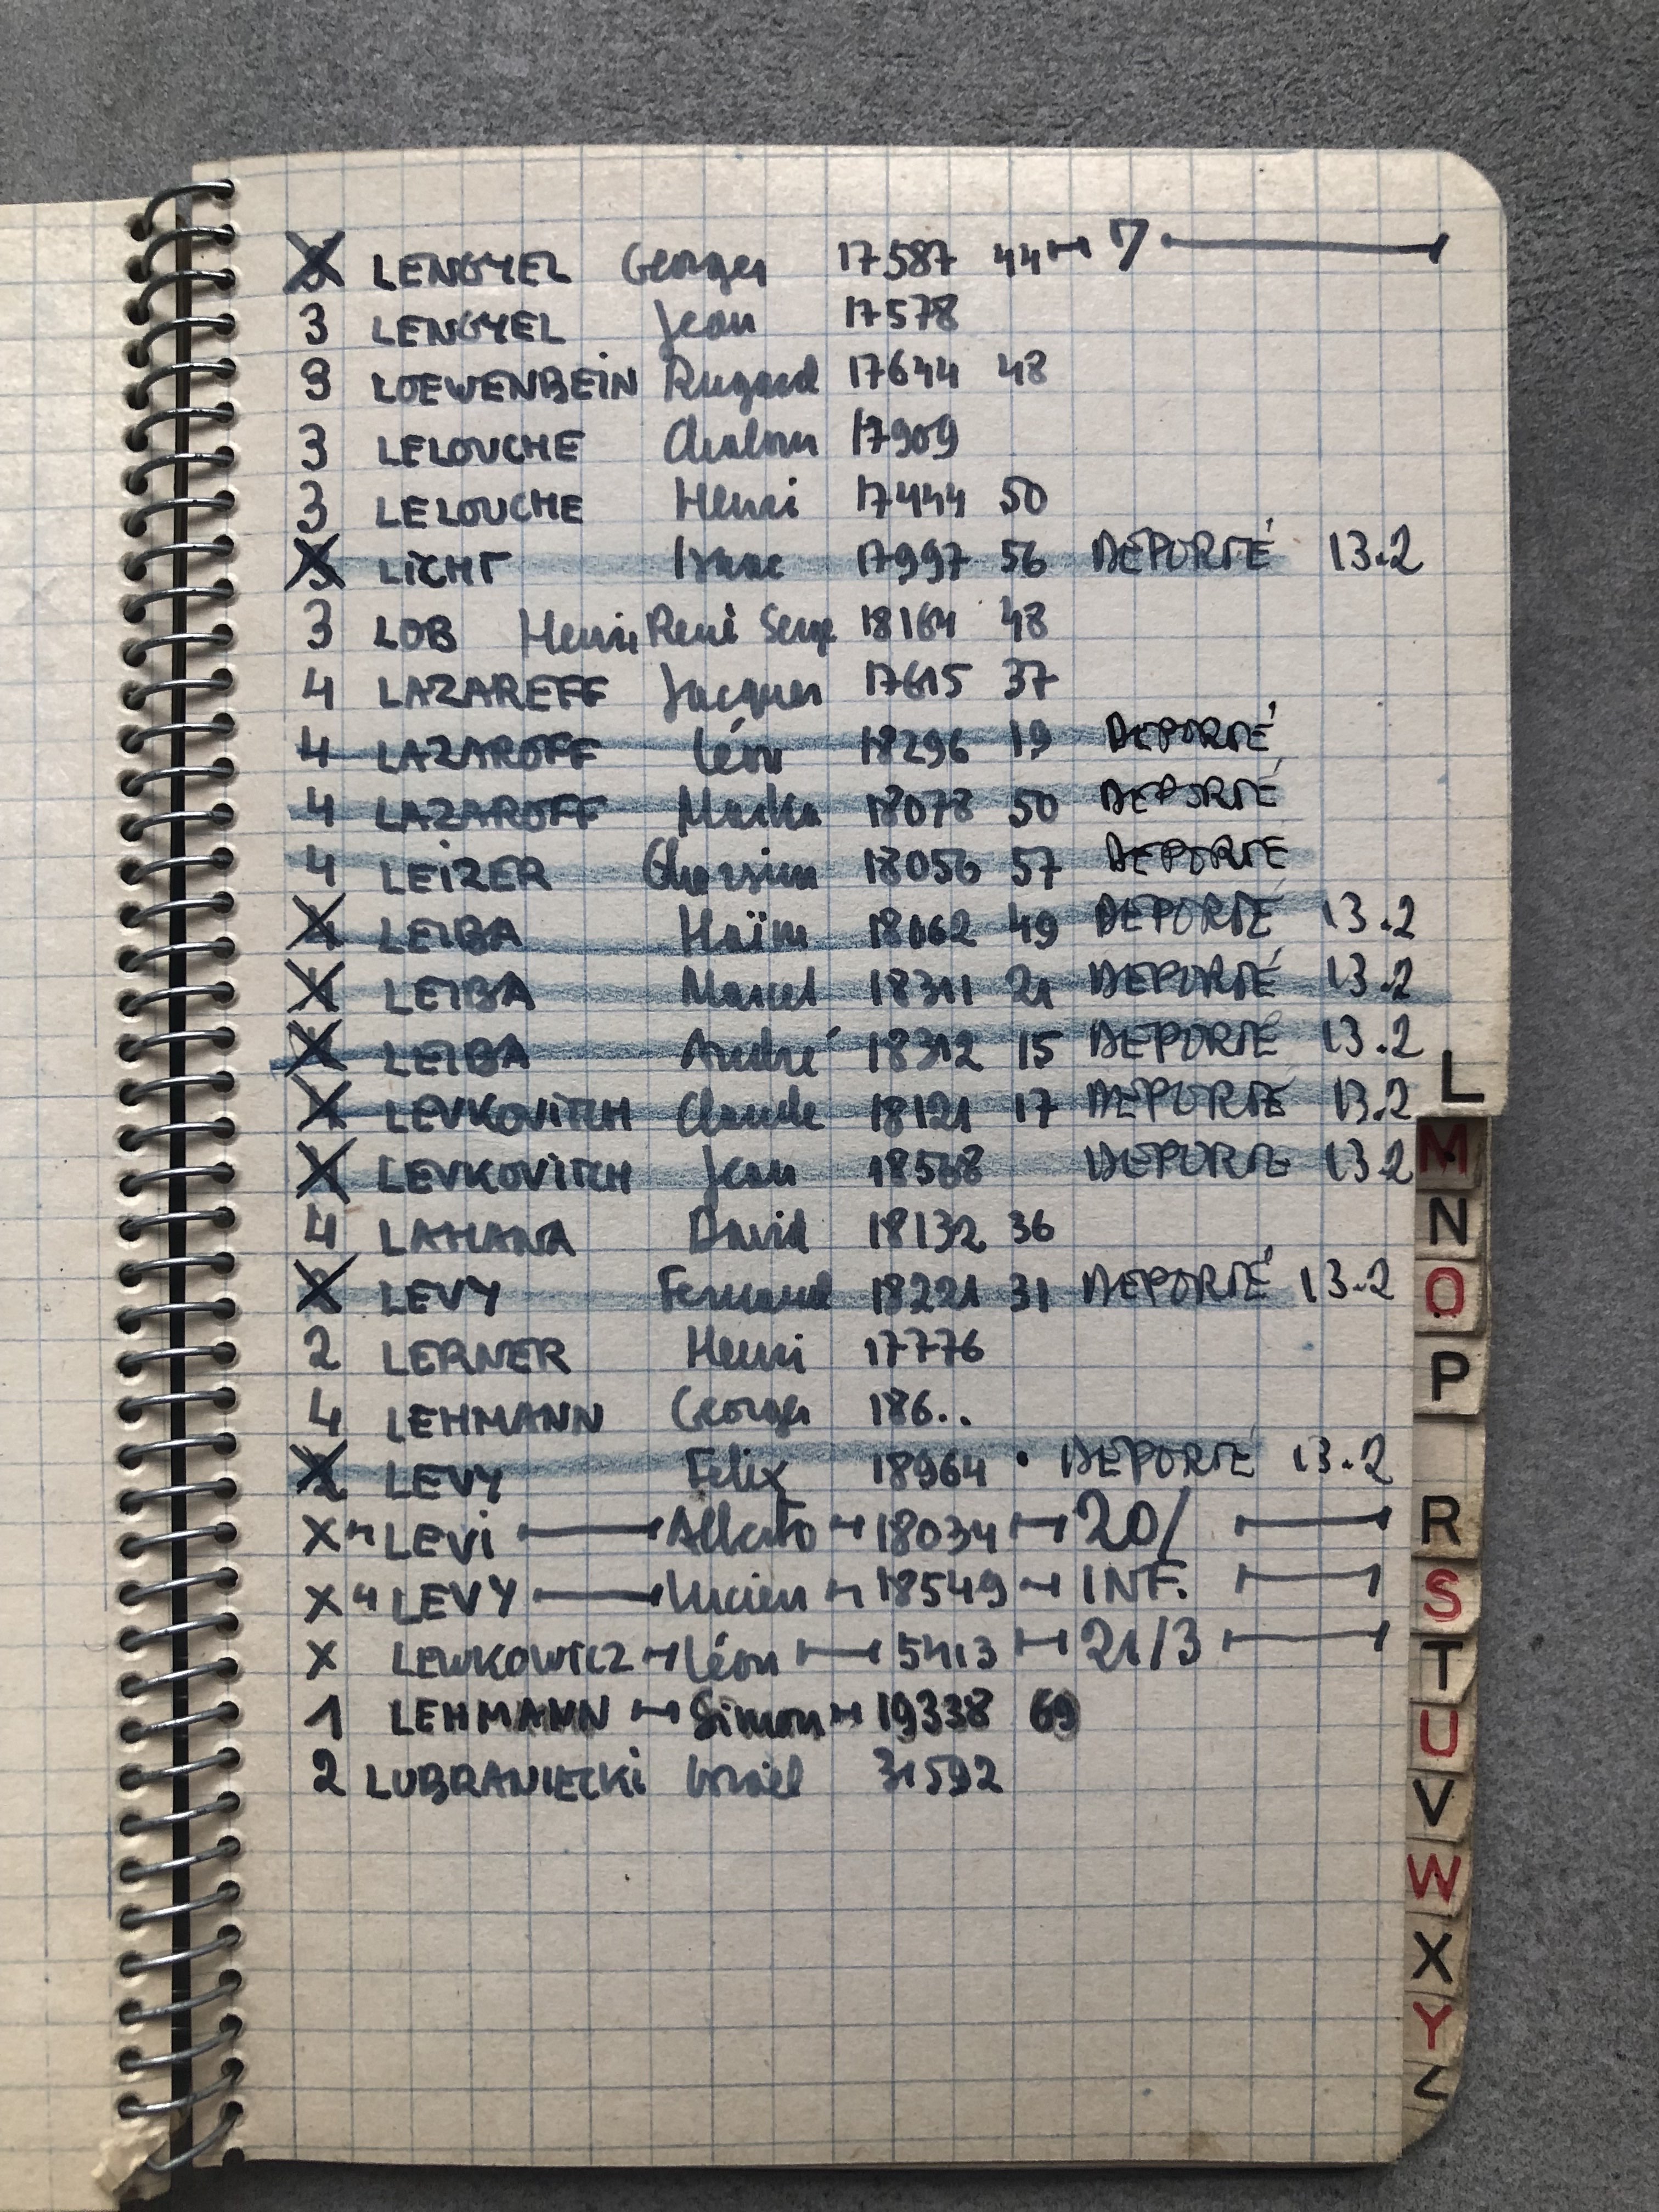 LENGYEL Georges 17587 44 7
3 LENGYEL Jean 17578
3 LOEWENBEIN 17644 48
3 LELOUCHE Chaloum 17909
3 LELOUCHE Henri 17444 50
LICHT Isaac 17997 56 DEPORTÉ 13.2
3 LOB Henri René Serge 18164 48
4 LAZAREFF Jacques 17615 37
4 LAZAROFF Léon 18296 19 DEPORTÉ
4 LAZAROFF 18078 50 DEPORTÉ
4 LEIZER 18056 57 DEPORTE
LEIBA Haïm 18062 49 DEPORTÉ 13.2
LEIBA Marcel 18311 21 DEPORTÉ 13.2
LEIBA André 18312 15 DEPORTÉ 13.2
LEVKOVITCH Claude 18121 17 DEPORTÉ 13.2
LEVKOVITCH Jean 18568 DEPORTE 13.2
4 LAHANA David 18132 36
LEVY Fernand 18221 31 DEPORTÉ 13.2
2 LERNER Henri 17776
4 LEHMANN Georges 186..
LEVY Felix 18964 • DEPORTÉ 13.2
X 4 LEVI Alberto 18034 20/
X 4 LEVY Lucien 18549 INF.
X LEWKOWICZ Léon 5413 21/3
1 LEHMANN Simon 19338 69
2 LUBRANIECKI Israël 31592
L
M
N
O
P
R
S
T
U
V
W
X
Y
Z